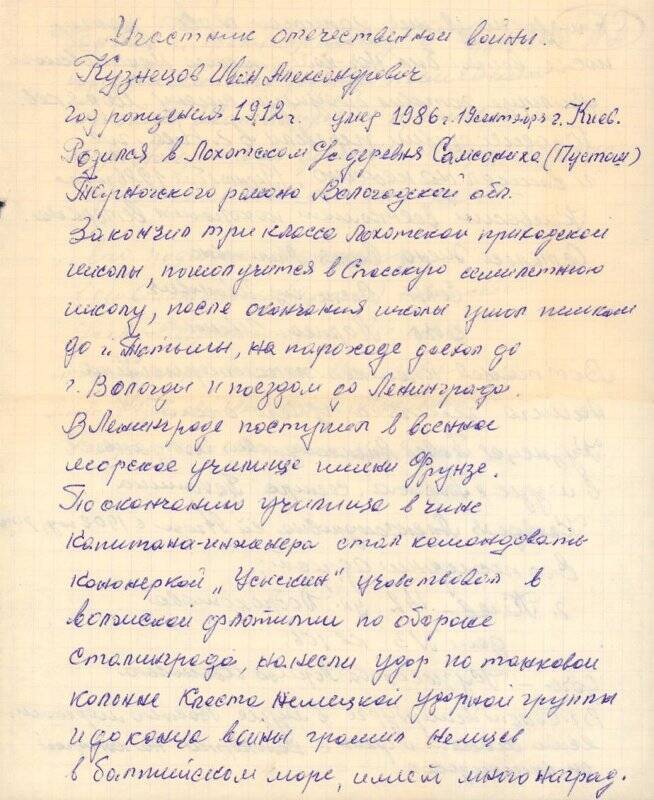 Участник отечественной войны.
Кузнецов Иван Александрович
год рождения 1912 г. умер 1986 г. 19 сентября г. Киев.
Родился в Лохотском С/с. деревня Самсониха (Пустош)
Тарногского района Вологодской обл.
Закончил три класса Лохотской приходской
школы, пошол учится в Спасскую семилетнюю
школу, после окончания школы ушол пешком
до г. Тотьмы, на пароходе доехал до
г. Вологды и поездом до Ленинграда.
В Ленинграде поступил в военное
морское училище имени Фрунзе.
По окончанию училища в чине
капитана-инженера стал командовать
канонеркой „Усыскин" участвовал в
волжской флотилии по обороне
Сталинграда, нанесли удар по танковой
колонне Клейста немецкой ударной группы
и до конца войны громил немцев
в балтийском море, имеет много наград.